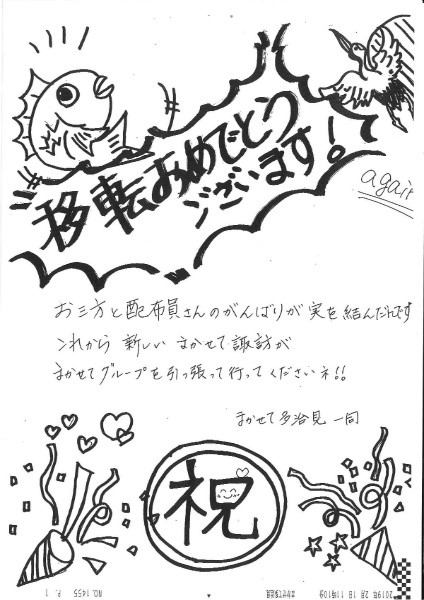 移転おめでとう
ございます!
again
お三方と配布員さんのがんばりが実を結んだんです
これから 新しい まかせて諏訪が
まかせてグループを引っ張って行ってくださいネ!!
まかせて多治見 一同
祝
2019年 2月 1日 11時10分
NO. 1455 P. 1